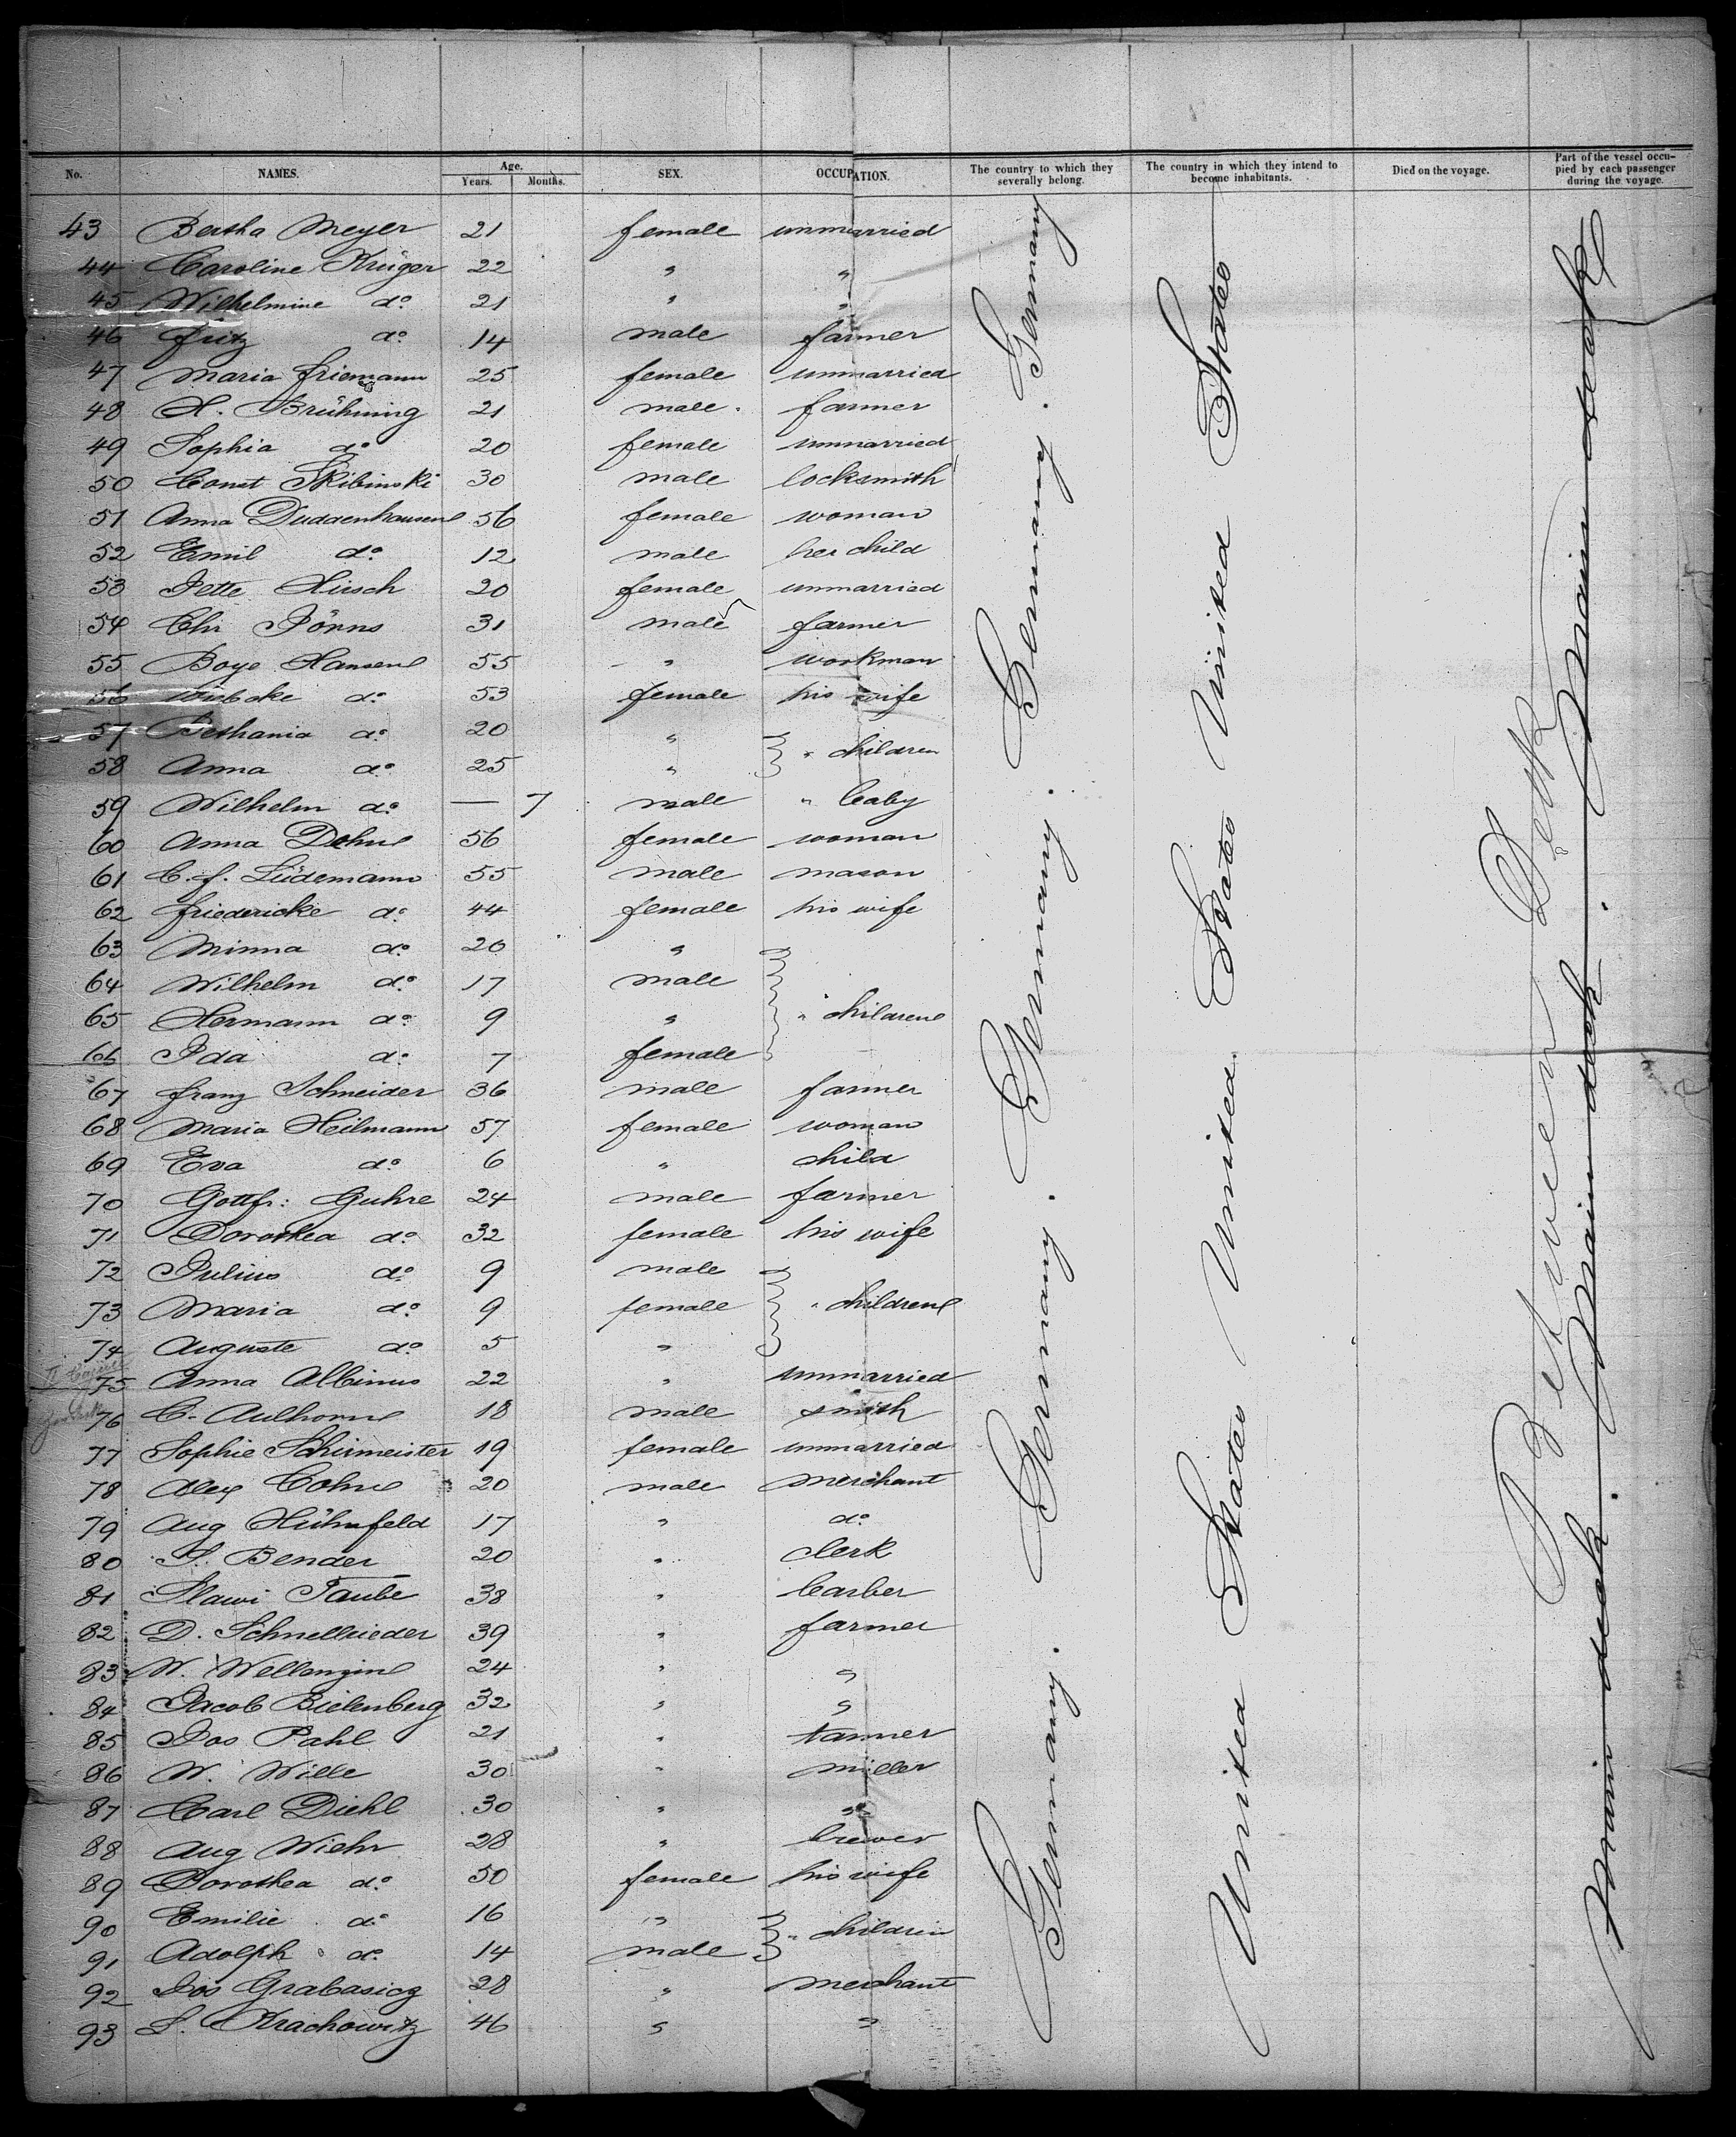 No. NAMES. Age. Years. Months. SEX. OCCUPATION. The country to which they severally belong. The country in which they intend to become inhabitants. Died on the voyage. Part of the vessel occupied by each passenger during the voyage.
43 Bertha Meyer 21 female unmarried
44 Caroline Krüger 22 " "
45 Wilhelmine do 21 " "
46 Fritz do 14 male farmer
47 Maria Friemann 25 female unmarried
48 H. Brühning 21 male farmer
49 Sophia do 20 female unmarried
50 Const Skibinski 30 male locksmith
51 Anna Duddenhausen 56 female woman
52 Emil do 12 male her child
53 Jette Hirsch 20 female unmarried
54 Chr Jörns 31 male farmer
55 Boye Hansen 55 " workman
56 Wiebke do 53 female his wife
57 Bethania do 20 "
58 Anna do 25 " " children
59 Wilhelm do — 7 male " baby
60 Anna Dehn 56 female woman
61 C. F. Lüdemann 55 male mason
62 Friedericke do 44 female his wife
63 Minna do 20 "
64 Wilhelm do 17 male
65 Hermann do 9 " " children
66 Ida do 7 female
67 Franz Schneider 36 male farmer
68 Maria Heilmann 57 female woman
69 Eva do 6 " child
70 Gottfr: Guhre 24 male farmer
71 Dorothea do 32 female his wife
72 Julius do 9 male
73 Maria do 9 female " children
74 Auguste do 5 "
75 Anna Albinus 22 " unmarried
76 C. Aulhorn 18 male smith
77 Sophie Schirmeister 19 female unmarried
78 Alex Cohn 20 male merchant
79 Aug Hühnfeld 17 " do
80 S. Bender 20 " clerk
81 Slawi Taube 38 " barber
82 D. Schnellrieder 39 " farmer
83 W. Wellenzin 24 " "
84 Jacob Bielenberg 32 " "
85 Jos Pahl 21 " tanner
86 W. Wille 30 " miller
87 Carl Diehl 30 " "
88 Aug Wiehr 28 " brewer
89 Dorothea do 50 female his wife
90 Emilie do 16 "
91 Adolph do 14 male " children
92 Jos Grabasicz 28 " merchant
93 S. Strachowitz 46 " "
Germany. Germany. Germany. Germany. Germany. Germany
United States United States United States
Between Deck
Main deck. Main deck. Main deck